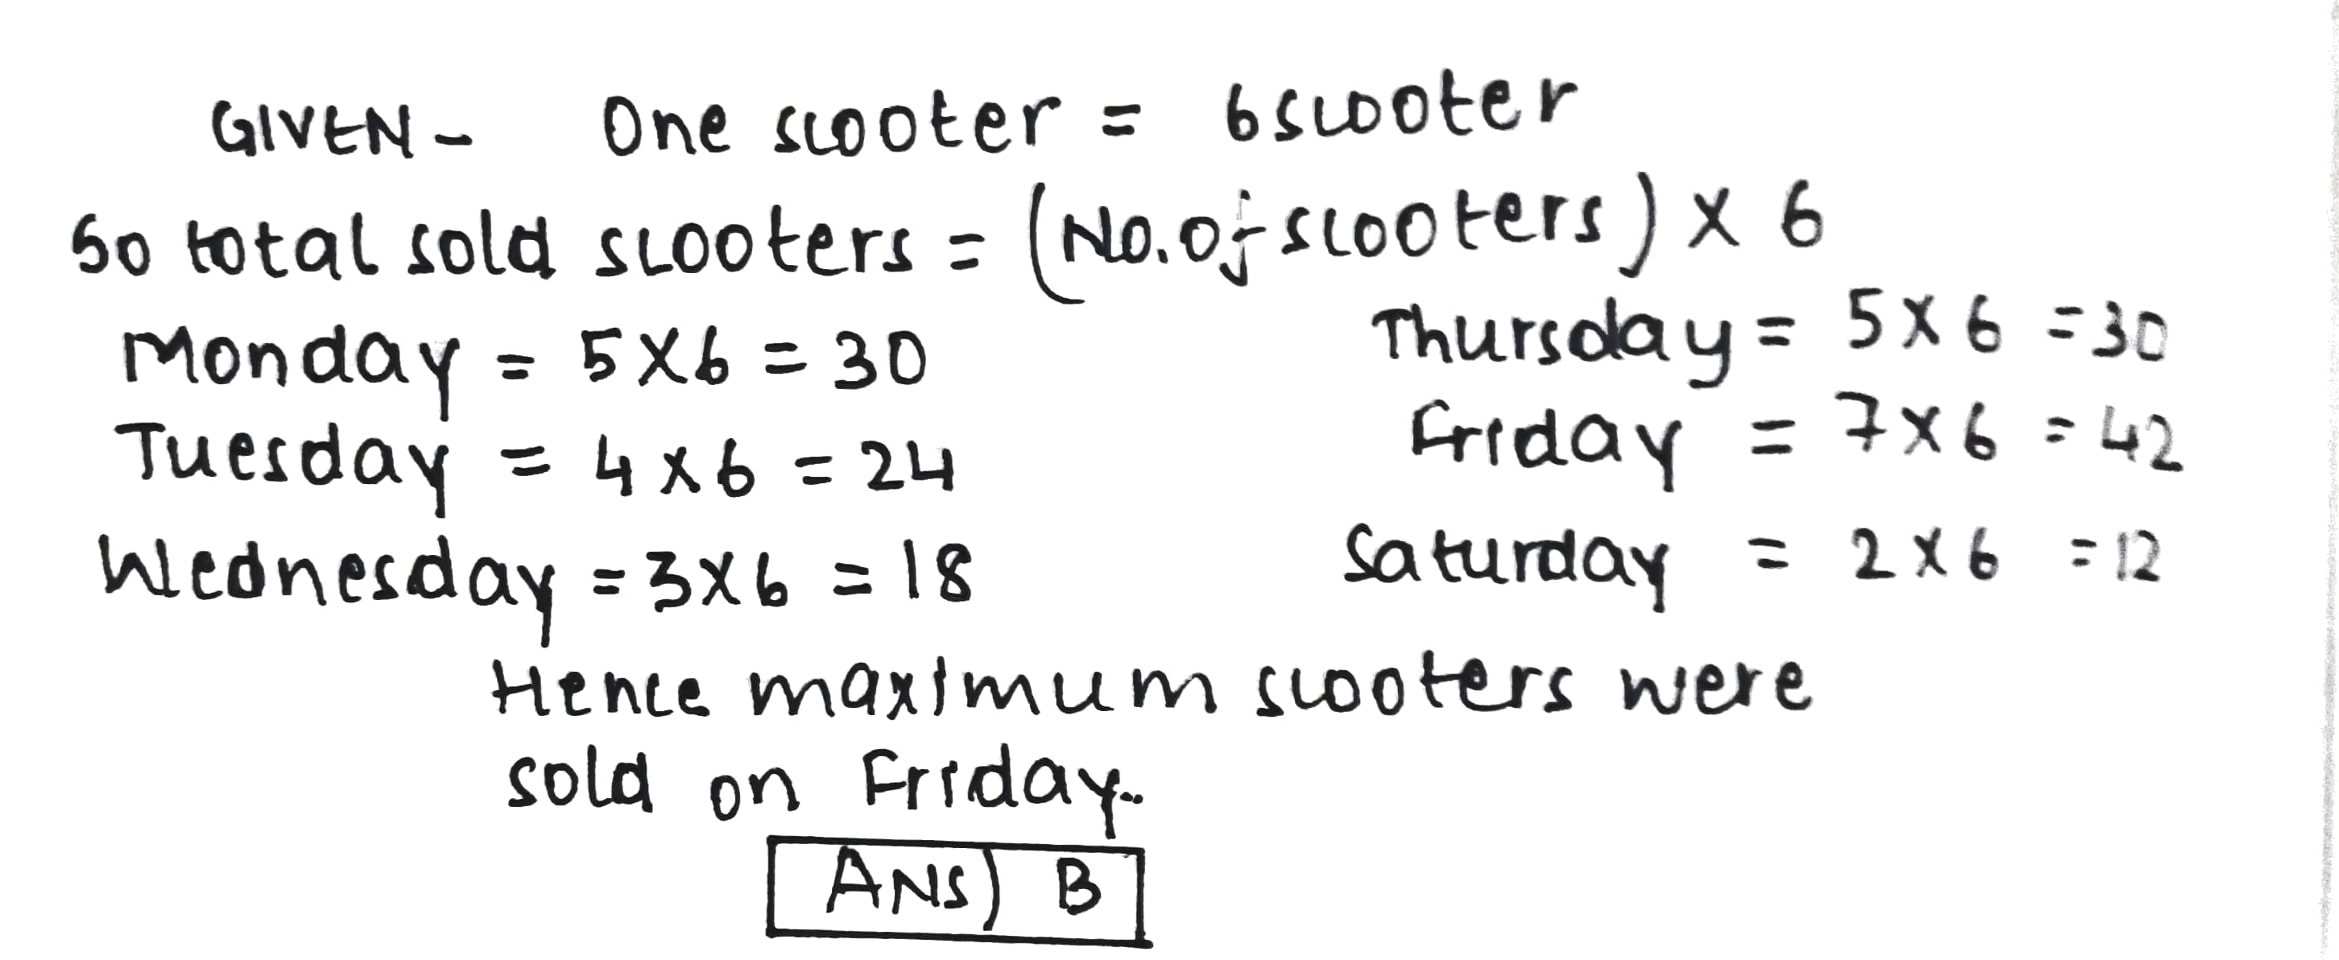 GIVEN - One scooter = 6 scooter
So total sold scooters = (No. of scooters) × 6
Monday = 5×6 = 30
Tuesday = 4×6 = 24
Wednesday = 3×6 = 18
Thursday = 5×6 = 30
Friday = 7×6 = 42
Saturday = 2×6 = 12
Hence maximum scooters were
sold on Friday..
ANS) B